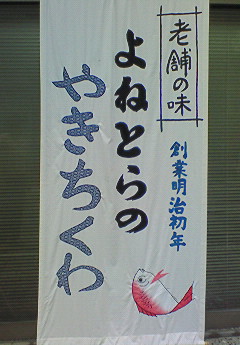 老舗の味
創業明治初年
よねとらの
やきちくわ